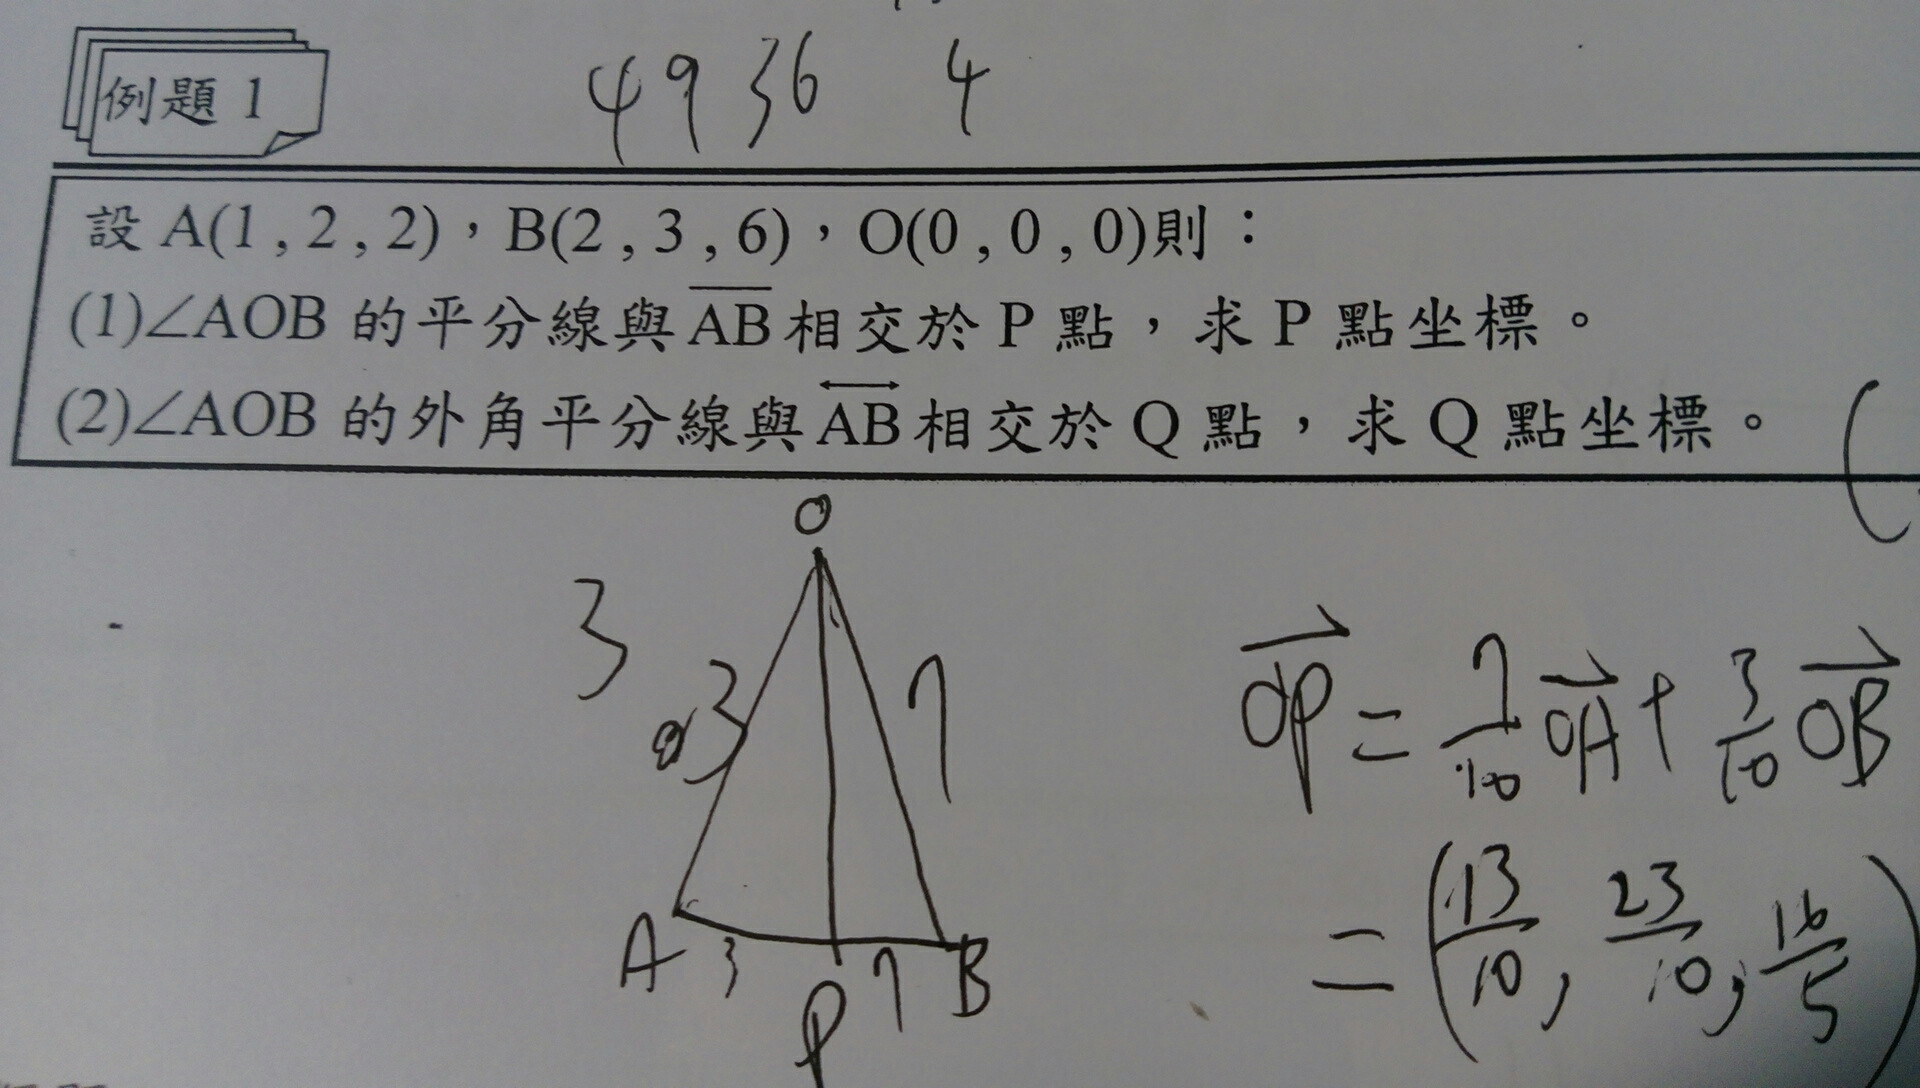 例題 1
4 9 36 4
設 A(1 , 2 , 2)，B(2 , 3 , 6)，O(0 , 0 , 0)則：
(1)∠AOB 的平分線與 A̅B̅ 相交於 P 點，求 P 點坐標。
(2)∠AOB 的外角平分線與 AB 相交於 Q 點，求 Q 點坐標。
O
3
3
7
OP = 7/10 OA + 3/10 OB
= (13/10, 23/10, 16/5)
A 3 7 B
P